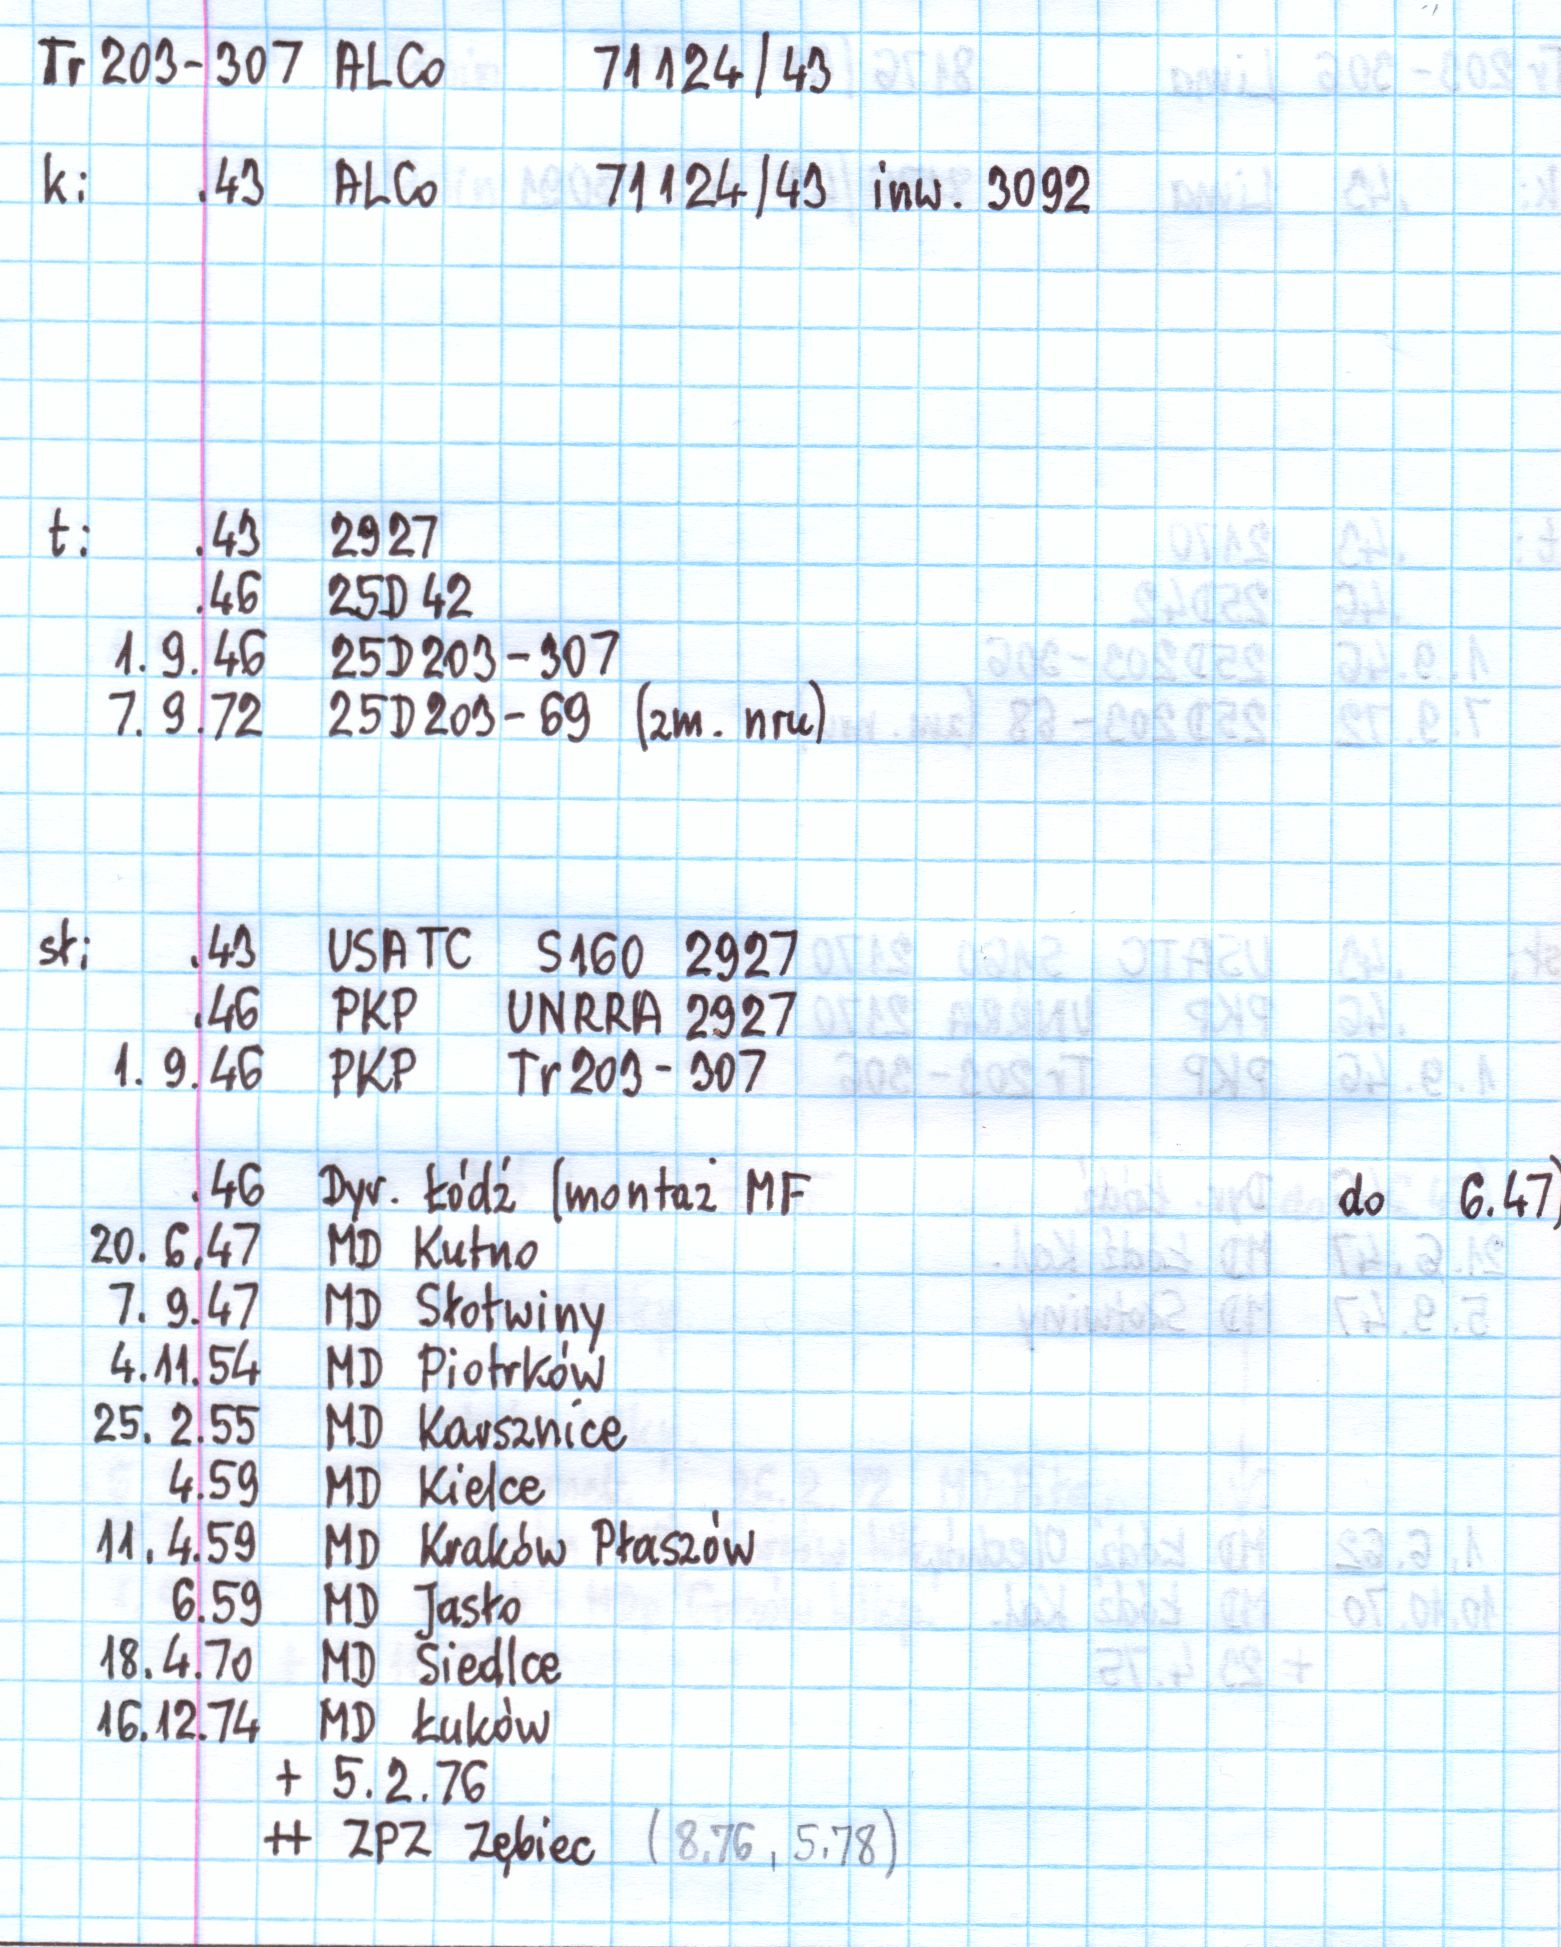 Tr 203-307 ALCo 71124/43
k: .43 ALCo 71124/43 inw. 3092
t: .43 2927
.46 25D42
1.9.46 25D203-307
7.9.72 25D203-69 (zm. nru)
st: .43 USATC S160 2927
.46 PKP UNRRA 2927
1.9.46 PKP Tr203-307
.46 Dyr. Łódź (montaż MF do 6.47)
20.6.47 MD Kutno
7.9.47 MD Słotwiny
4.11.54 MD Piotrków
25.2.55 MD Karsznice
4.59 MD Kielce
11.4.59 MD Kraków Płaszów
6.59 MD Jasło
18.4.70 MD Siedlce
16.12.74 MD Łuków
+ 5.2.76
++ ZPZ Zębiec (8.76, 5.78)